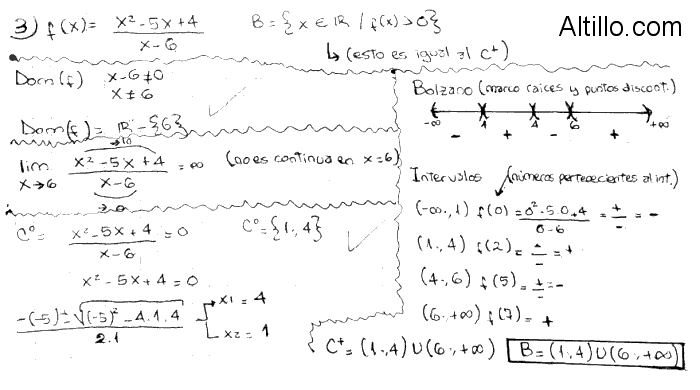 Altillo.com
3) f(x) = x² - 5x + 4 / x - 6    B = {x ∈ ℝ / f(x) > 0}
↳ (esto es igual al C⁺)
Dom(f)    x - 6 ≠ 0
x ≠ 6
Dom(f) = ℝ - {6}
→10
lim x→6 x² - 5x + 4 / x - 6 = ∞    (no es continua en x = 6)
→0
C⁰ = x² - 5x + 4 / x - 6 = 0    C⁰ = {1 ; 4}
x² - 5x + 4 = 0
-(-5) ± √(-5)² - 4.1.4 / 2.1    x1 = 4
x2 = 1
Bolzano (marco raices y puntos discont.)
-∞    1    4    6    +∞
-    +    -    +
Intervalos    (números pertenecientes al int.)
(-∞ ; 1) f(0) = 0² - 5.0 + 4 / 0 - 6 = + / - = -
(1 ; 4) f(2) = - / - = +
(4 ; 6) f(5) = + / - = -
(6 ; +∞) f(7) = +
C⁺ = (1 ; 4) U (6 ; +∞)    B = (1 ; 4) U (6 ; +∞)